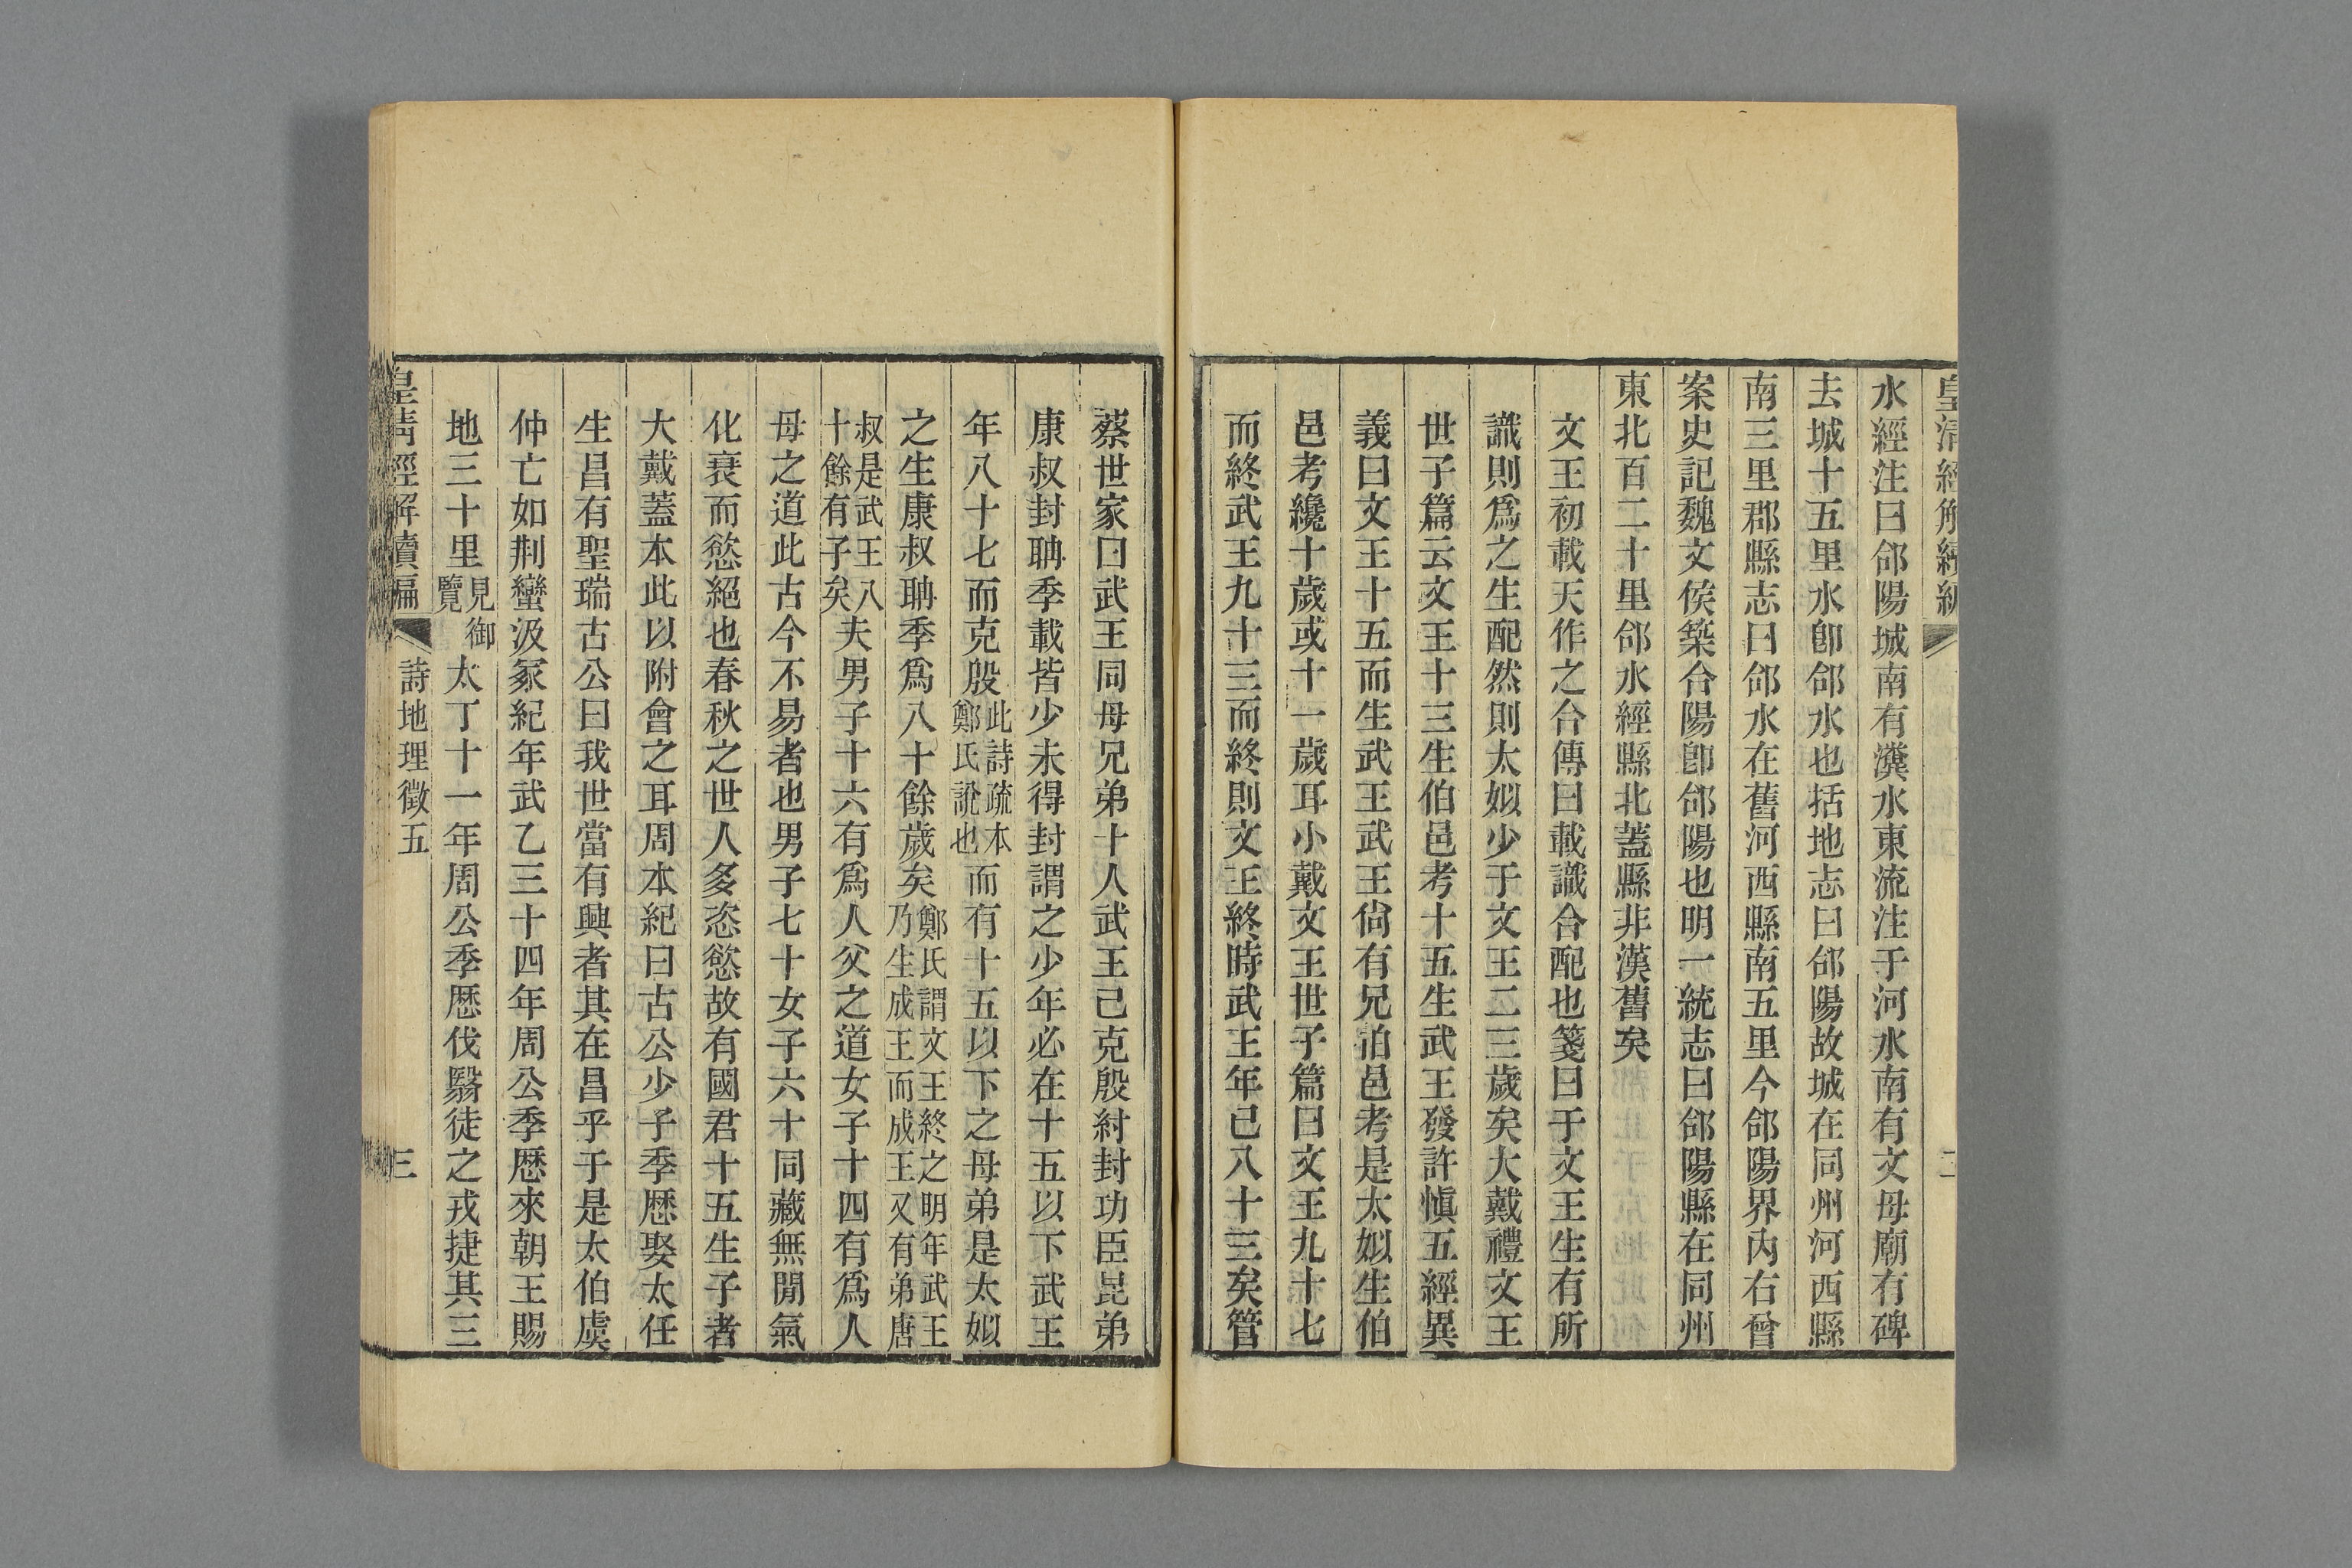 皇清經解續編
二
水經注曰郃陽城南有瀵水東流注于河水南有文母廟有碑
去城十五里水卽郃水也括地志曰郃陽故城在同州河西縣
南三里郡縣志曰郃水在舊河西縣南五里今郃陽界內右會
案史記魏文侯築合陽卽郃陽也明一統志曰郃陽縣在同州
東北百二十里郃水經縣北蓋縣非漢舊矣
文王初載天作之合傳曰載識合配也箋曰于文王生有所
識則爲之生配然則太姒少于文王二三歲矣大戴禮文王
世子篇云文王十三生伯邑考十五生武王發許慎五經異
義曰文王十五而生武王武王尙有兄伯邑考是太姒生伯
邑考纔十歲或十一歲耳小戴文王世子篇曰文王九十七
而終武王九十三而終則文王終時武王年已八十三矣管
蔡世家曰武王同母兄弟十人武王已克殷紂封功臣昆弟
康叔封聃季載皆少未得封謂之少年必在十五以下武王
年八十七而克殷此詩疏本鄭氏說也而有十五以下之母弟是太姒
之生康叔聃季爲八十餘歲矣鄭氏謂文王終之明年武王乃生成王而成王又有弟唐
叔是武王八十餘有子矣夫男子十六有爲人父之道女子十四有爲人
母之道此古今不易者也男子七十女子六十同藏無閒氣
化衰而慾絕也春秋之世人多恣慾故有國君十五生子者
大戴蓋本此以附會之耳周本紀曰古公少子季歷娶太任
生昌有聖瑞古公曰我世當有興者其在昌乎于是太伯虞
仲亡如荆蠻汲冢紀年武乙三十四年周公季歷來朝王賜
地三十里見御覽太丁十一年周公季歷伐翳徒之戎捷其三
皇清經解續編
詩地理徵五
三